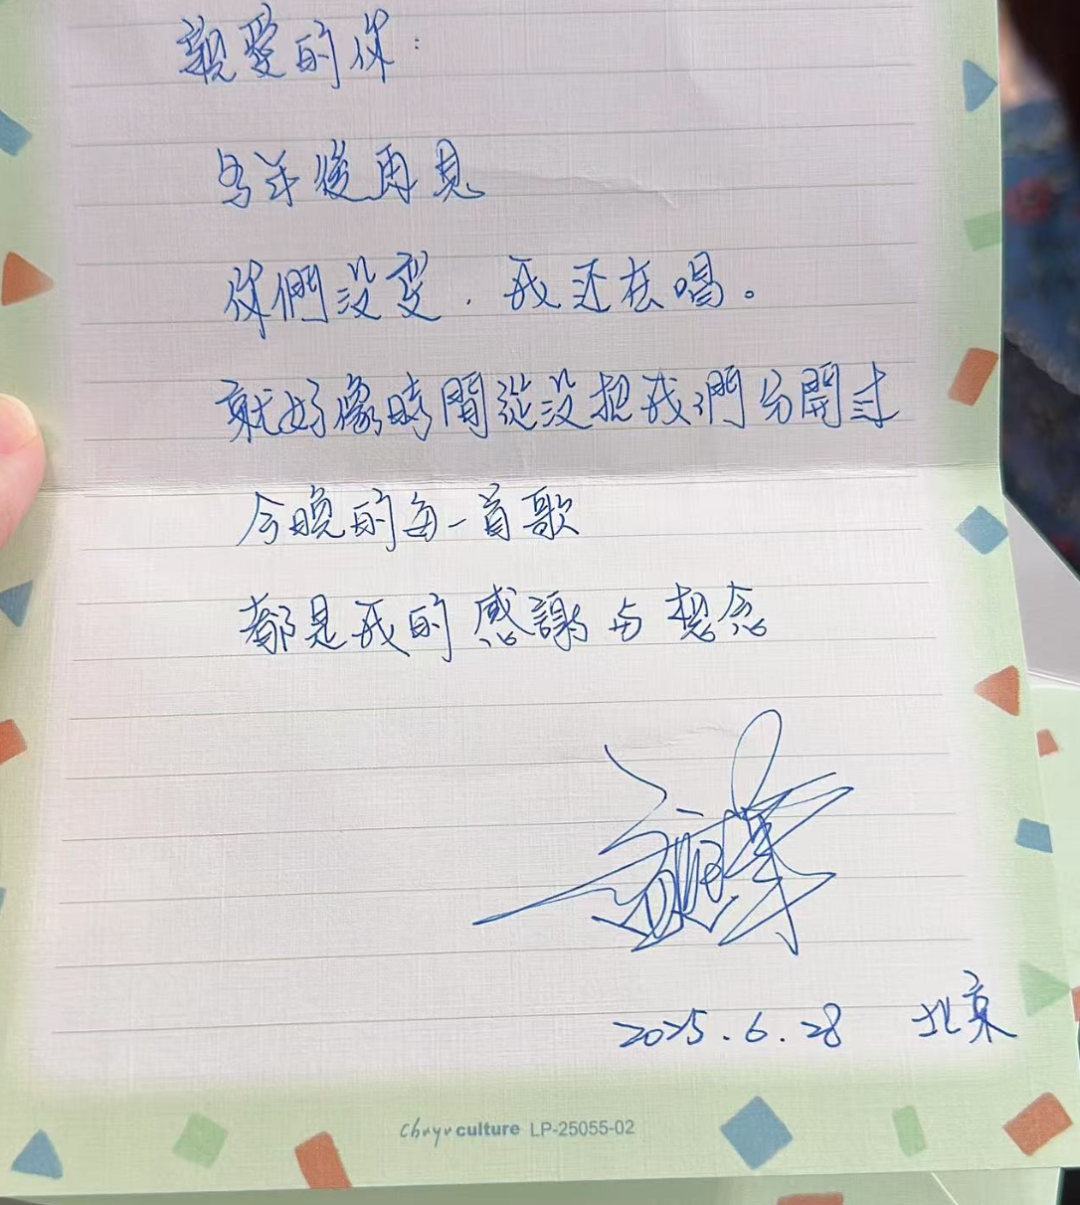 親愛的你:
多年後再見
你們沒變．我还在唱。
就好像時間從沒把我們分開过
今晚的每一首歌
都是我的感謝与想念
2025.6.28 北京
chuyu culture LP-25055-02